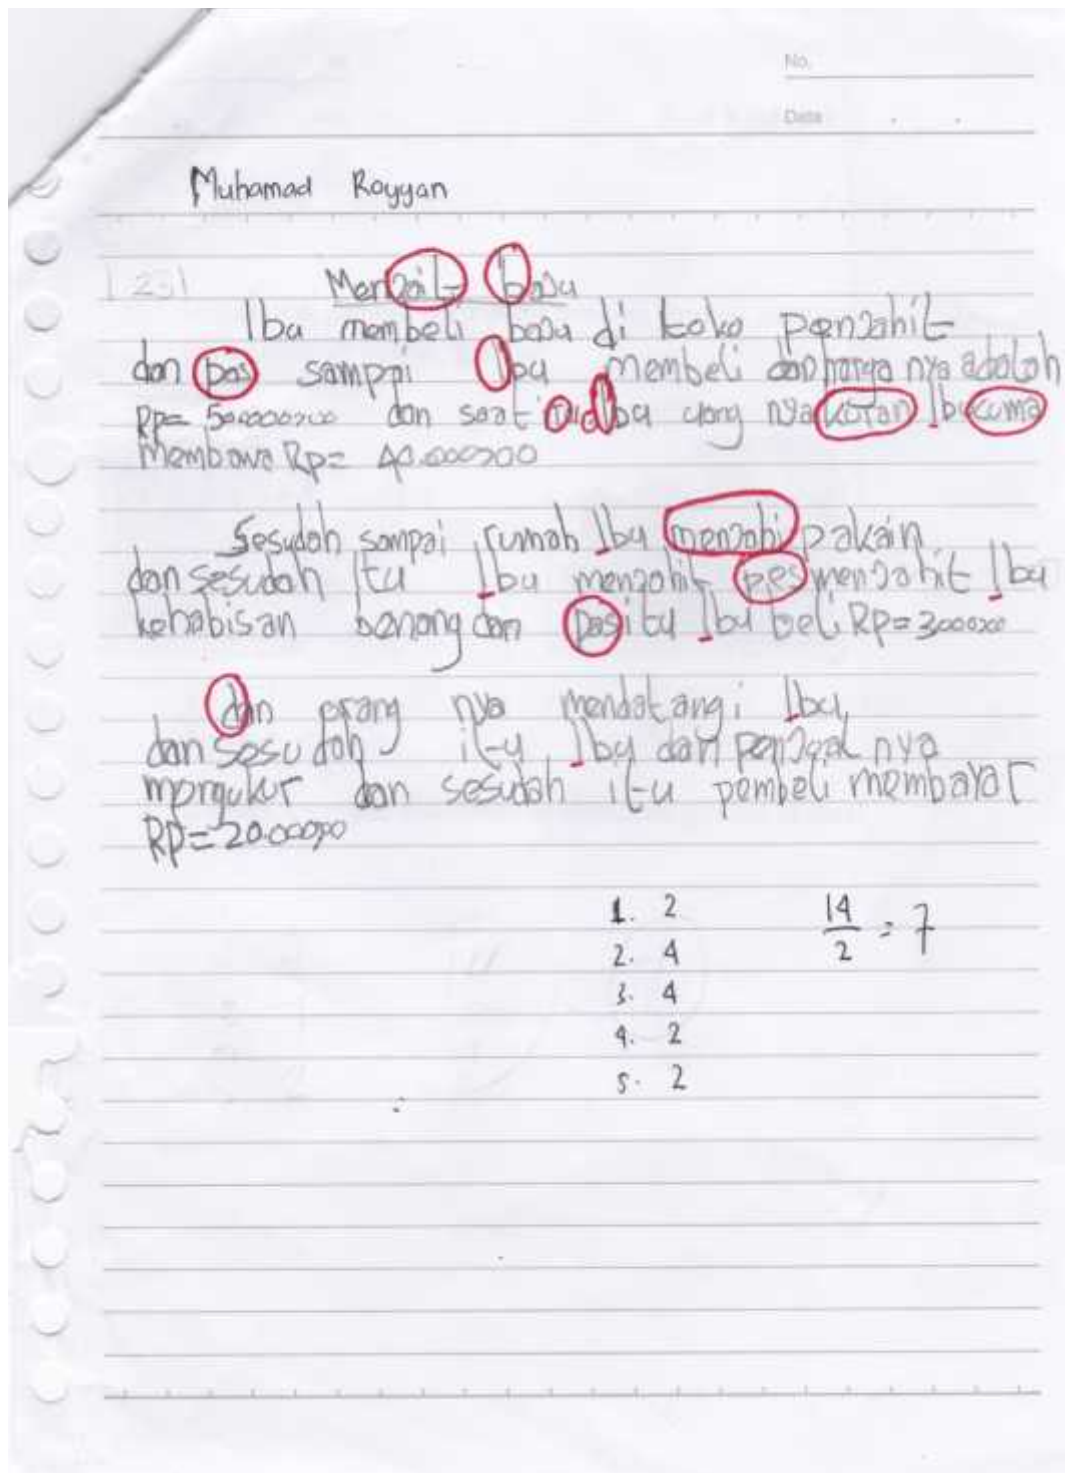 No.
Date
Muhamad Royyan
Menjait baju
Ibu membeli baju di toko penjahit
dan pas sampai Ibu membeli dan harga nya adalah
dan saat itu Ibu uang nya kuran Ibu cuma
Membawa Rp=
Sesudah sampai rumah Ibu menjahi pakain
dan sesudah Itu Ibu menjahit pes menjahit Ibu
kehabisan benang dan pas itu Ibu beli Rp=
dan orang nya mendatangi Ibu
dan sesudah itu Ibu dan penjual nya
mengukur dan sesudah itu pembeli membayar
Rp=
1. 2
14/2 = 7
2. 4
3. 4
4. 2
5. 2